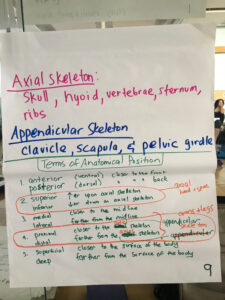 Axial Skeleton:
Skull, hyoid, vertebrae, sternum,
ribs
Appendicular Skeleton
clavicle, scapula, & pelvic girdle
Terms of Anatomical Position
1. anterior (ventral) closer to the front
posterior (dorsal) " " " back
2. superior ↑er upon axial skeleton
inferior ↓er down on axial skeleton
axial
head
3. medial closer to the midline
lateral farther from the midline
4. proximal closer to the skeleton
distal farther from the skeleton
arms & legs
appendicular
skeleton
appendicular
5. superficial closer to the surface of the body
deep farther from the surface of the body
9